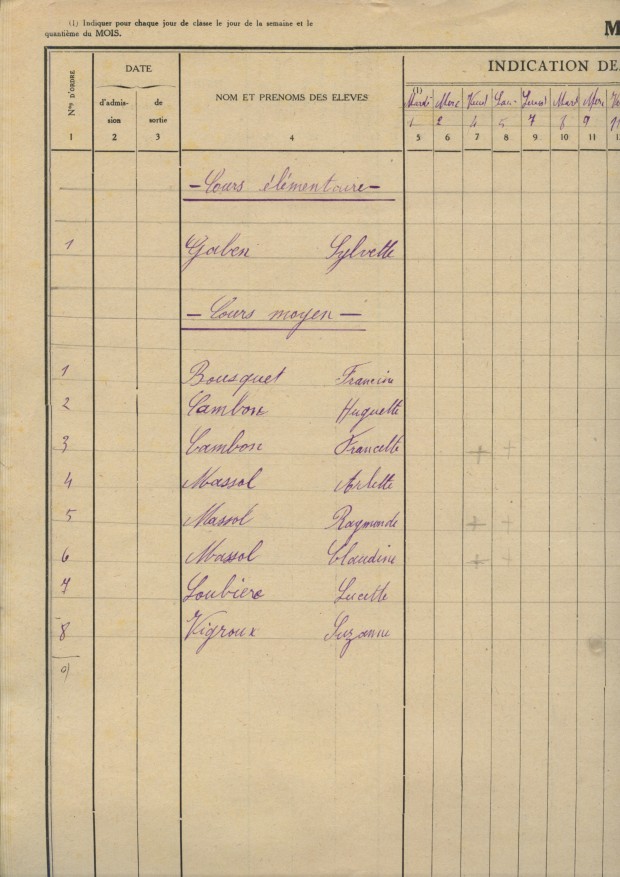 (1) Indiquer pour chaque jour de classe le jour de la semaine et le
quantième du MOIS.
M
N°s D'ORDRE
DATE
d'admis-
sion
de
sortie
NOM ET PRENOMS DES ELEVES
INDICATION DE
(1)
Mardi Merc Vend Sam Lundi Mard Merc
1 2 4 5 7 8 9 11
1 2 3 4 5 6 7 8 9 10 11 1
- Cours élémentaire -
1 Gaben Sylvette
- Cours moyen -
1 Bousquet Francine
2 Cambon Huguette
3 Cambon Francette + +
4 Massol Arlette
5 Massol Raymonde + +
6 Massol Claudine + +
7 Loubiere Lucette
8 Vigroux Suzanne
9)